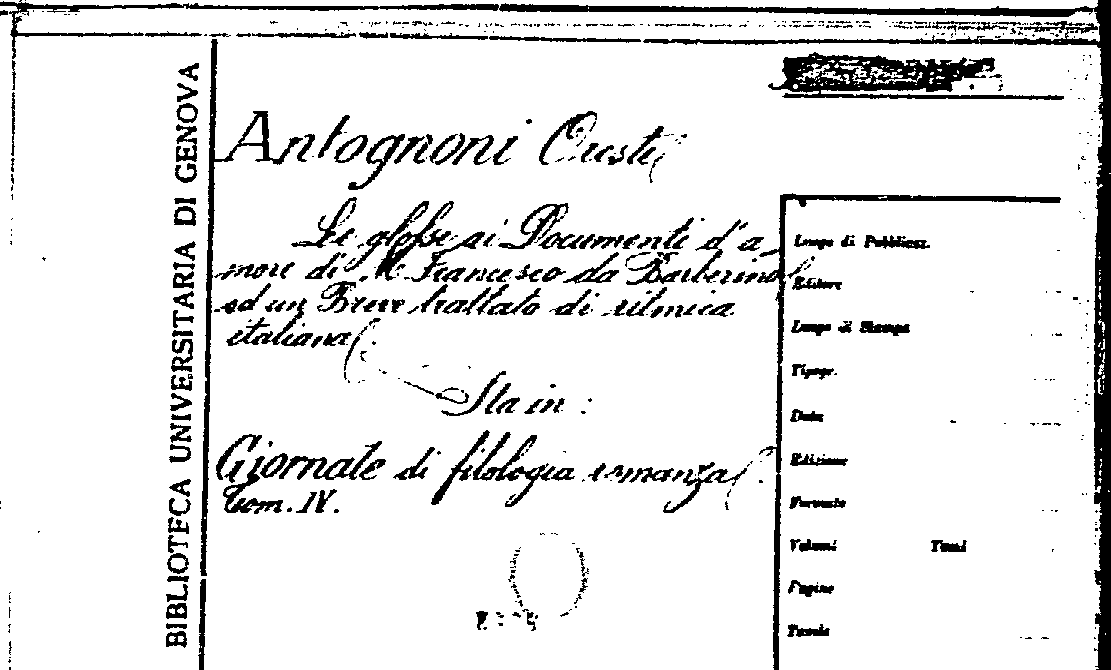 BIBLIOTECA UNIVERSITARIA DI GENOVA
Antognoni Oreste
Le glosse ai Documenti d'a-
more di M. Francesco da Barberino
ed un Breve trattato di ritmica
italiana.
Sta in:
Giornale di filologia romanza.
Tom. IV.
Luogo di Pubblicaz.
Editore
Luogo di Stampa
Tipogr.
Data
Edizione
Formato
Volumi Tomi
Pagine
Tavole